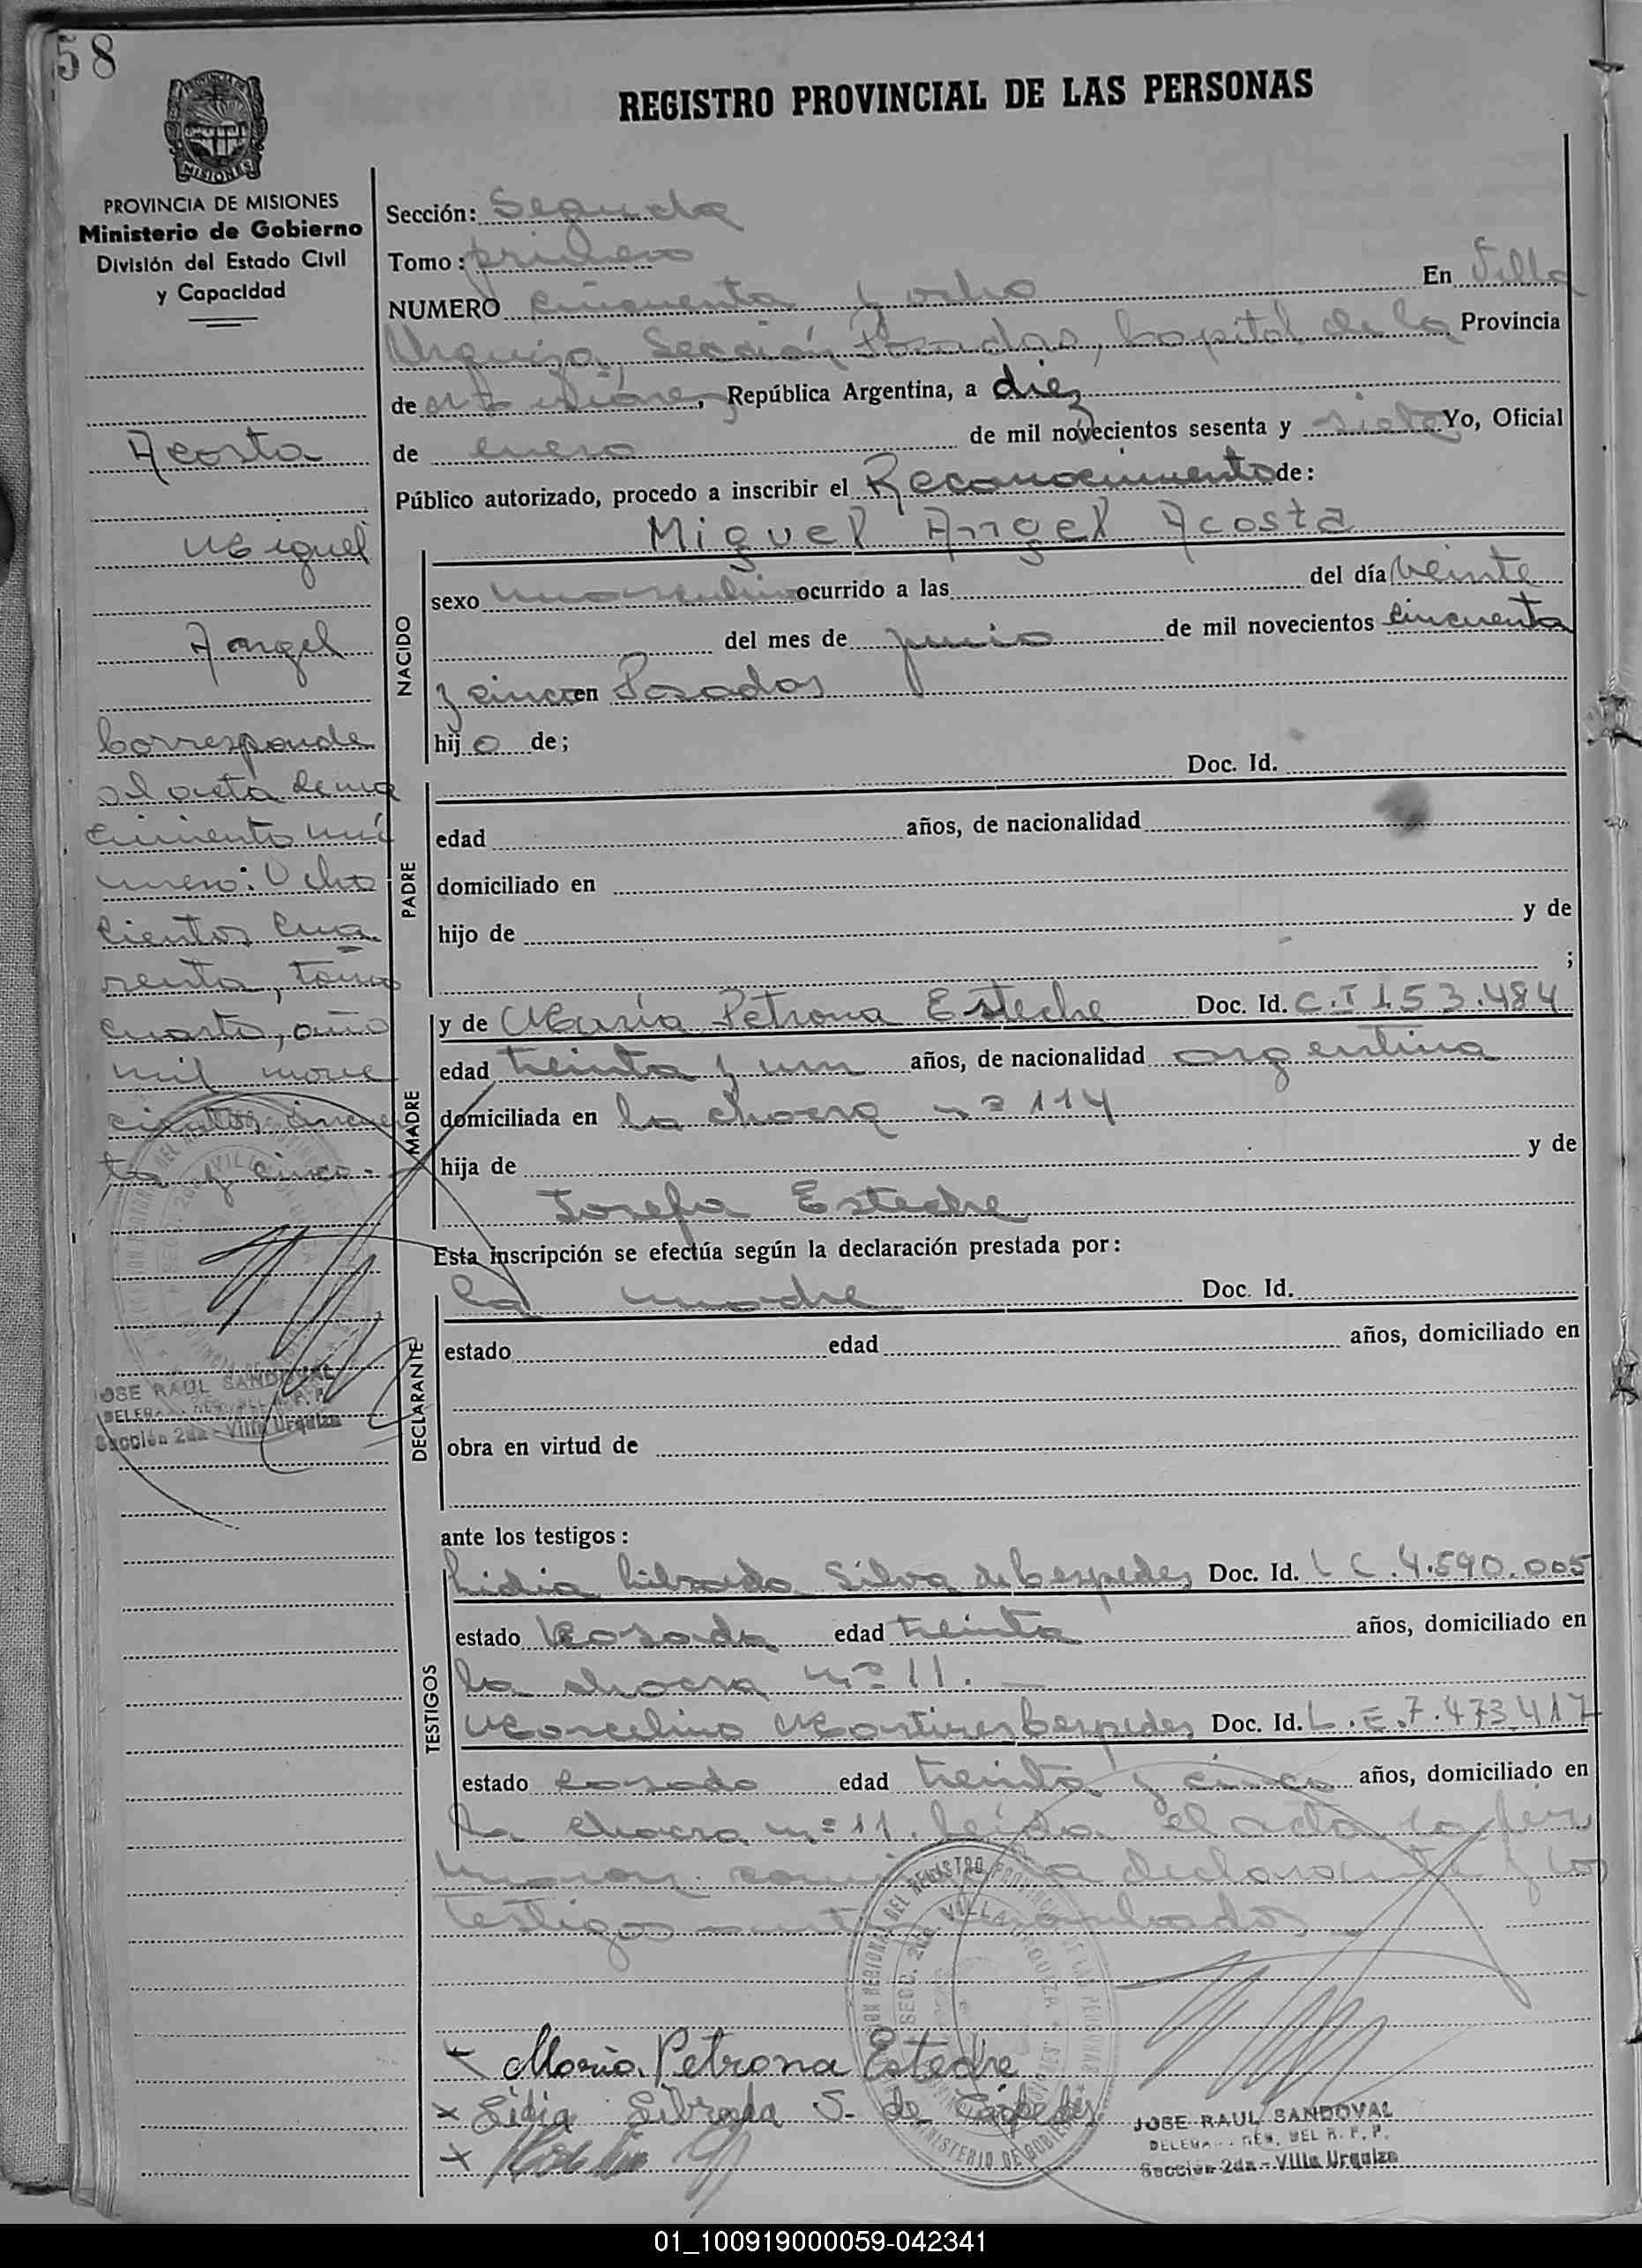 58
REGISTRO PROVINCIAL DE LAS PERSONAS
MISIONES
PROVINCIA DE MISIONES
Ministerio de Gobierno
División del Estado Civil
y Capacidad
Acosta
Miguel
Angel
Corresponde
al acta de na
cimiento nú
mero: Ocho
cientos cua
renta, tomo
cuarto, año
mil nove
cientos cincuen
ta y cinco.-
JOSE RAUL SANDOVAL
Sección 2da - Villa Urquiza
Sección: Segunda
Tomo: primero
NUMERO cincuenta y ocho En Villa
Urquiza, Sección Posadas, Capital de la Provincia
de Misiones, República Argentina, a diez
de enero de mil novecientos sesenta y siete Yo, Oficial
Público autorizado, procedo a inscribir el Reconocimiento de:
Miguel Angel Acosta
NACIDO
sexo masculino ocurrido a las del día Veinte
del mes de junio de mil novecientos cincuenta
y cinco en Posadas
hijo de;
Doc. Id.
PADRE
edad años, de nacionalidad
domiciliado en
hijo de y de
;
MADRE
y de María Petrona Esteche Doc. Id. C.I 153.484
edad treinta y un años, de nacionalidad argentina
domiciliada en la chacra nº 114
hija de y de
Josefa Esteche
Esta inscripción se efectúa según la declaración prestada por:
DECLARANTE
la madre Doc. Id.
estado edad años, domiciliado en
obra en virtud de
ante los testigos:
TESTIGOS
Lidia Librada Silva de Cespedes Doc. Id. L C. 4.590.005
estado Casada edad treinta años, domiciliado en
la chacra nº 11. —
Marcelino Martires Cespedes Doc. Id. L.E.7.473.417
estado casado edad treinta y cinco años, domiciliado en
la chacra nº 11. Leída el acta la fir
man la declarante y los
testigos nombrados
Maria Petrona Esteche
Lidia Librada S. de Céspedes
JOSE RAUL SANDOVAL
DELEGA.. REG. DEL R. P. P.
Sección 2da - Villa Urquiza
01_100919000059-042341